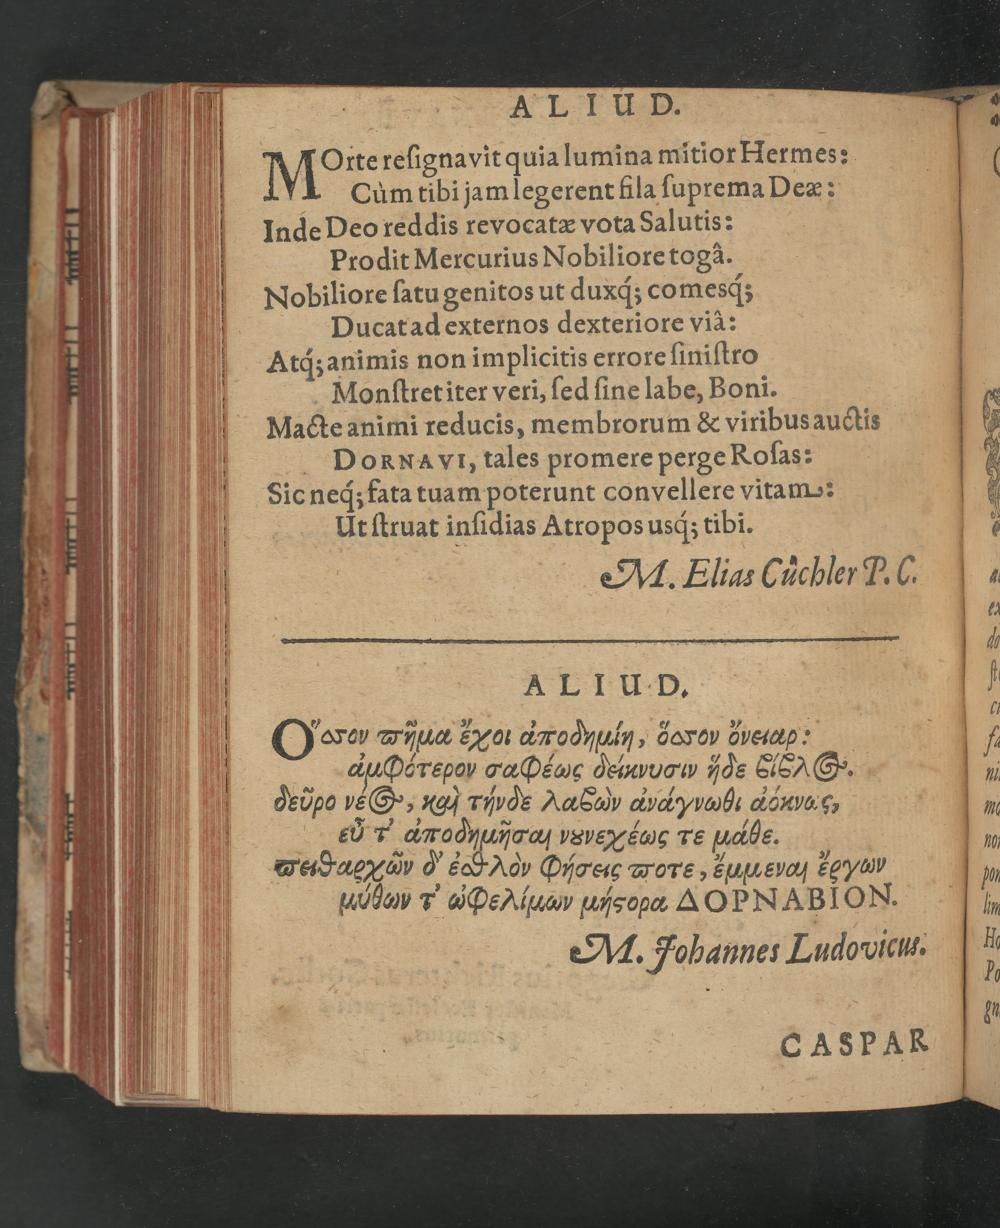 ALIUD.
MOrte resignavit quia lumina mitior Hermes:
Cùm tibi jam legerent fila suprema Deæ:
Inde Deo reddis revocatæ vota Salutis:
Prodit Mercurius Nobiliore togâ.
Nobiliore satu genitos ut duxq́; comesq́;
Ducat ad externos dexteriore viâ:
Atq́; animis non implicitis errore sinistro
Monstret iter veri, sed sine labe, Boni.
Macte animi reducis, membrorum & viribus auctis
DORNAVI, tales promere perge Rosas:
Sic neq́; fata tuam poterunt convellere vitam:
Ut struat insidias Atropos usq́; tibi.
M. Elias Cůchler P. C.
ALIUD.
Ὅσσον πῆμα ἔχοι ἀποδημίη, ὅσσον ὄνειαρ:
ἀμφότερον σαφέως δείκνυσιν ἥδε βίβλος.
δεῦρο νέος, καὶ τήνδε λαβὼν ἀνάγνωθι ἀόκνως,
εὖ τ' ἀποδημῆσαι νουνεχέως τε μάθε.
πειθαρχῶν δ' ἐσθλὸν φήσεις ποτε, ἔμμεναι ἔργων
μύθων τ' ὠφελίμων μήστορα ΔΟΡΝΑΒΙΟΝ.
M. Johannes Ludovicus.
CASPAR